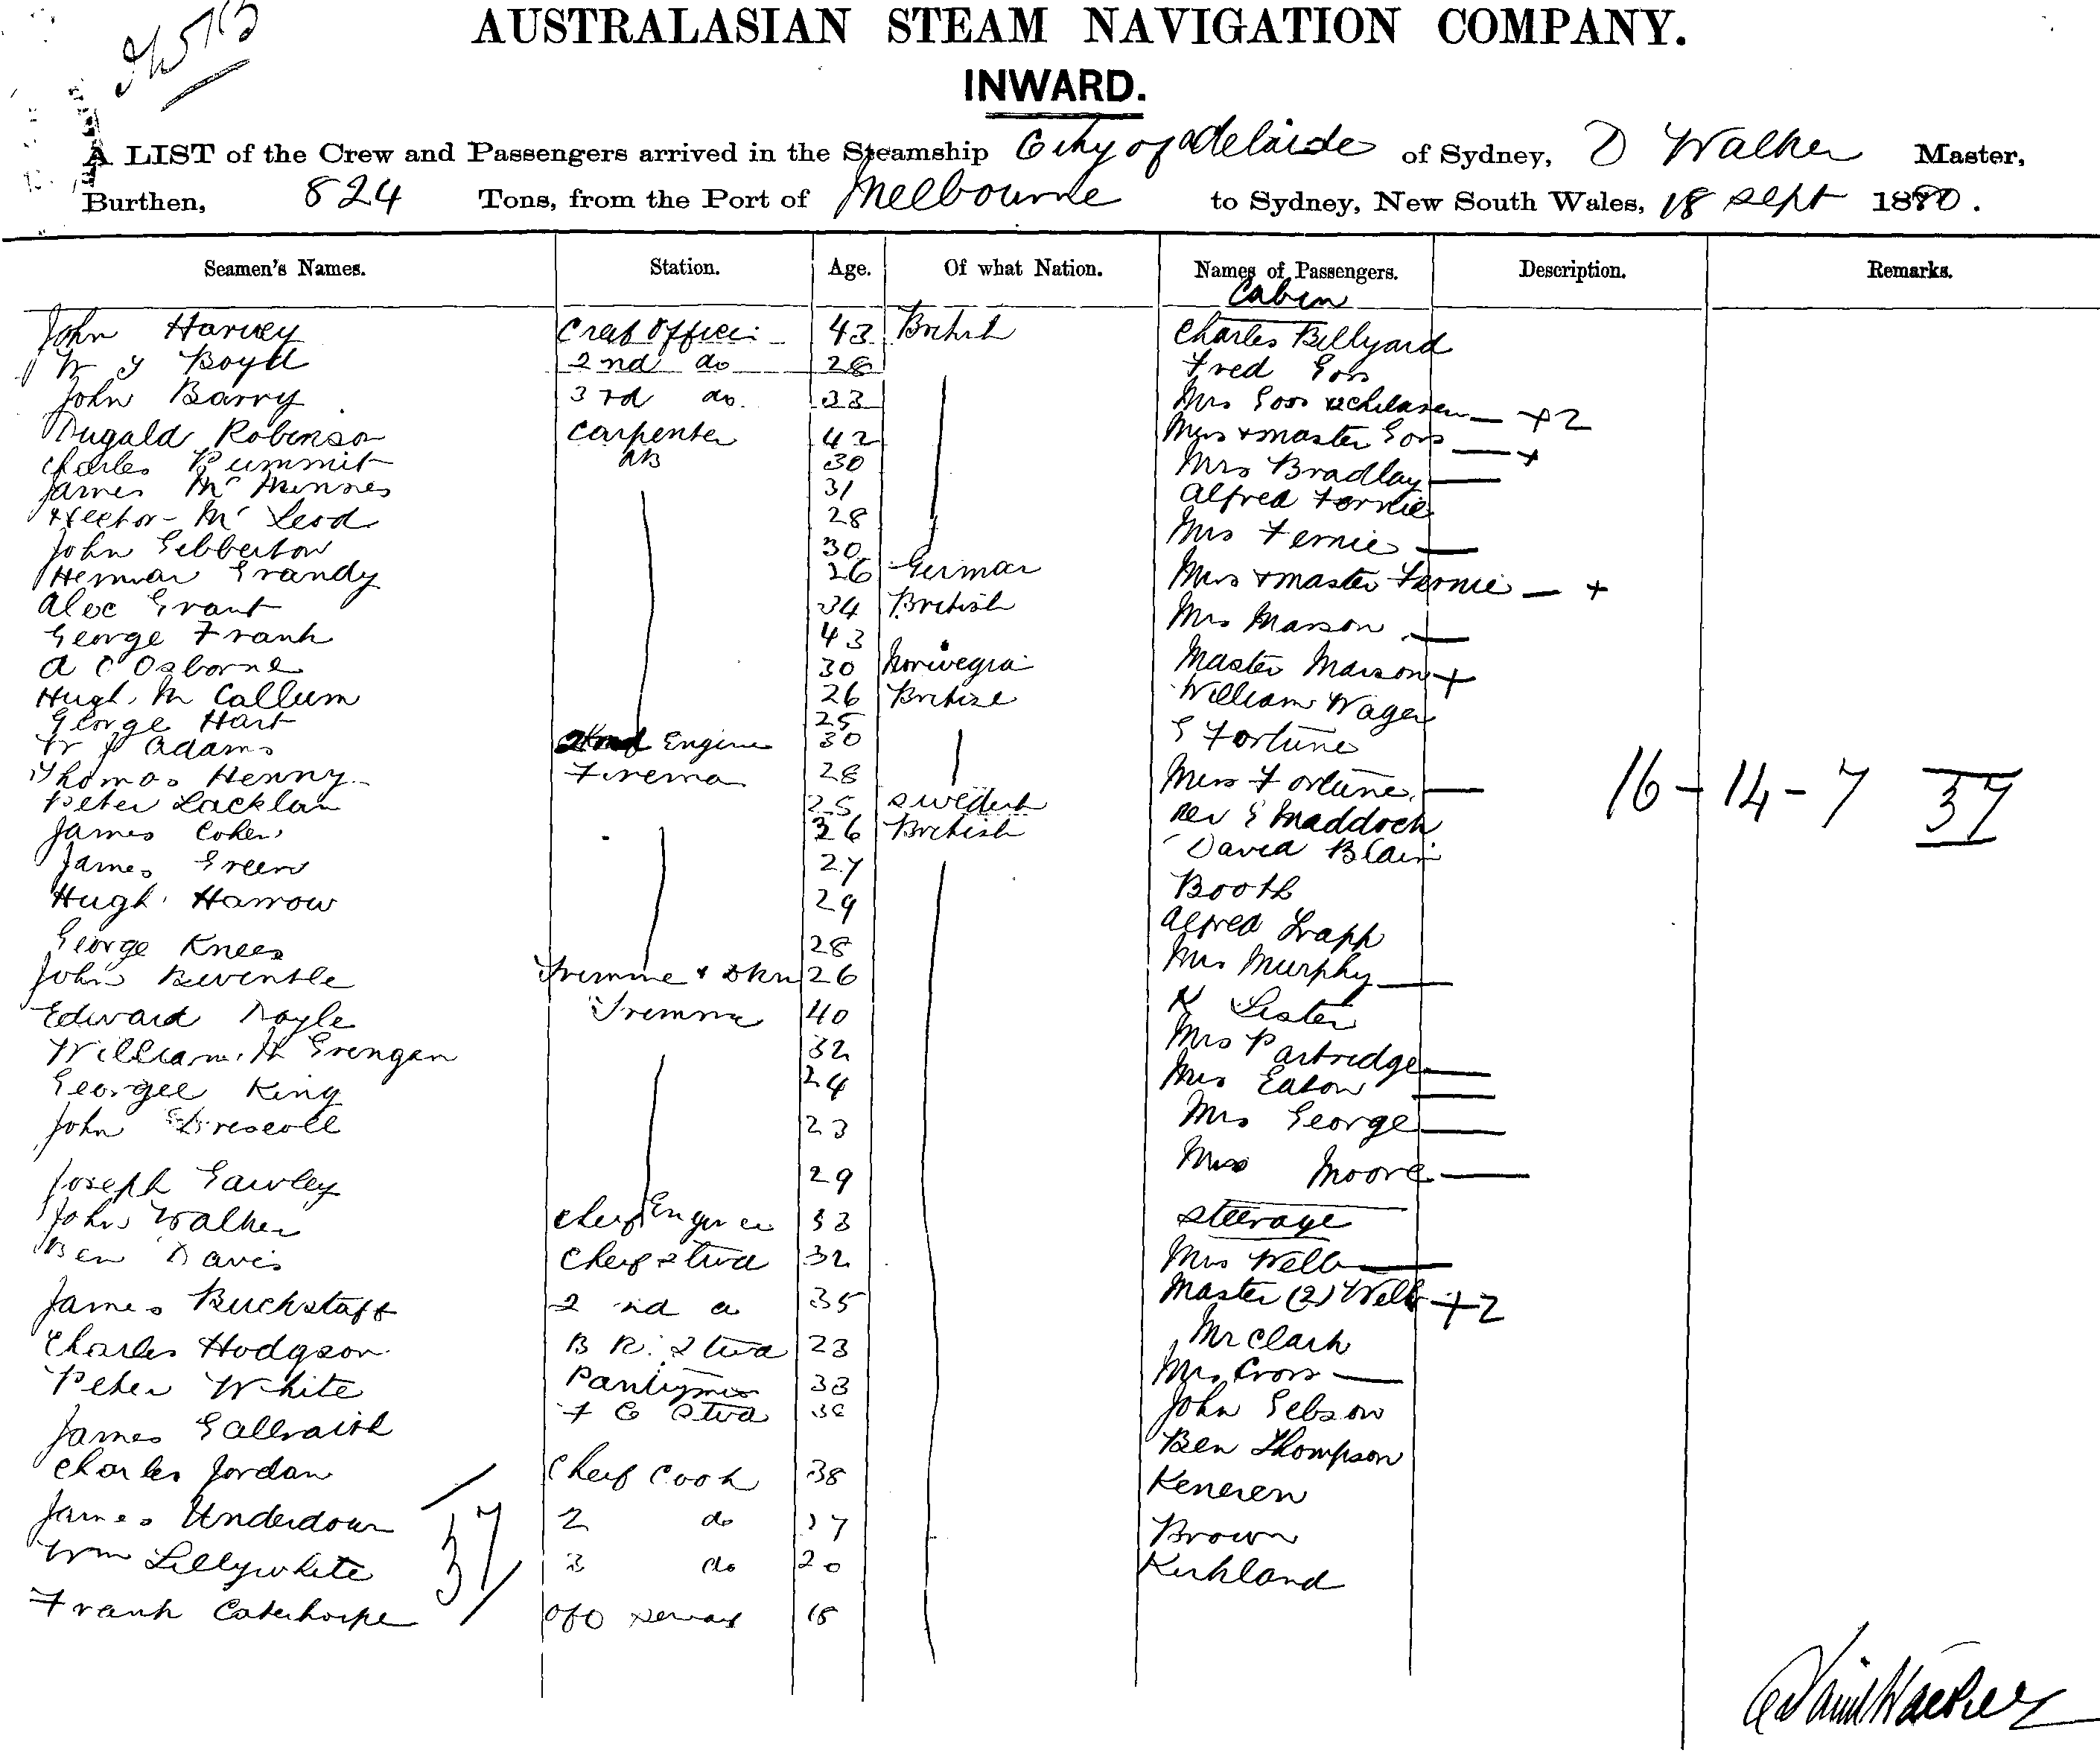 AUSTRALASIAN STEAM NAVIGATION COMPANY.
INWARD.
A LIST of the Crew and Passengers arrived in the Steamship City of Adelaide of Sydney, D Walker Master,
Burthen, 824 Tons, from the Port of Melbourne to Sydney, New South Wales, 18 Sept 1880.
Seamen's Names. Station. Age. Of what Nation. Names of Passengers. Description. Remarks.
Cabin
John Harvey 43 British Charles Billyard
Boyd 2nd do 28 Fred Goss
John Barry 3rd do. 33 Mrs Goss +2
Dugald Robinson Carpenter 42 Miss & master Goss — +
Charles AB 30 Mrs Bradlay —
James Mc 31 Alfred Fernie
Hector Mc Leod 28
John Gebberton 30 Mrs Fernie —
Grandy 26 German
Alec Grant 34 British Miss & master Fernie — +
George Frank 43 Mrs Marson —
A C Osborne 30 Norwegia Master Marson +
Hugh Mc Callum 26 William Wager
George Hart 25
W J Adams Engine 30 E Fortune
Thomas Henny Firema 28 Miss Fortune —
Peter Lacklan 25 Swedish Rev E Maddock
James Coker 26 British David Blair
16 - 14 - 7 37
James Green 27
Hugh Harrow 29 Booth
Alfred Trapp
George Knees 28 Mrs Murphy —
John 26
Edward Doyle 40 K Lester
William 32 Mrs Partridge —
Georgee King 24 Mrs Eaton —
John Driscoll 23 Mrs George —
Joseph Gawley 29 Miss Moore —
John Walker Cheif Engineer 33 Steerage
Ben Davis Cheif Stwd 32 Mrs Webb —
James Buckstaff 2nd 35 Master (2) Webb +2
Charles Hodgson B R. Stwd 23 Mr Clark
Peter White Pantryman 33 Mrs Cross —
James Galbraith Stwd John Gebson
Charles Jordan Cheif Cook 38 Ben Thompson
Keneren
James Underdown 2 do 17 Brown
37
Wm Lillywhite 3 do 20 Kirkland
Frank 18